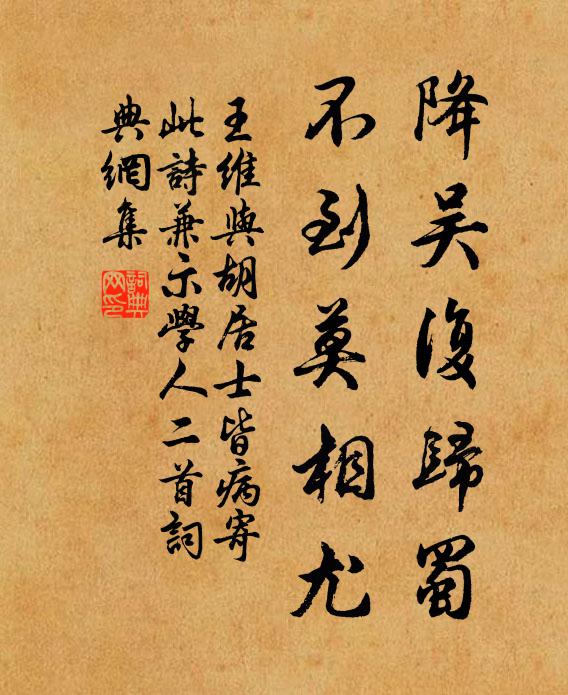 降吴復歸蜀
不到莫相尤
王維與胡居士皆病寄
此詩兼示學人二首詞
典網集
詞典网印